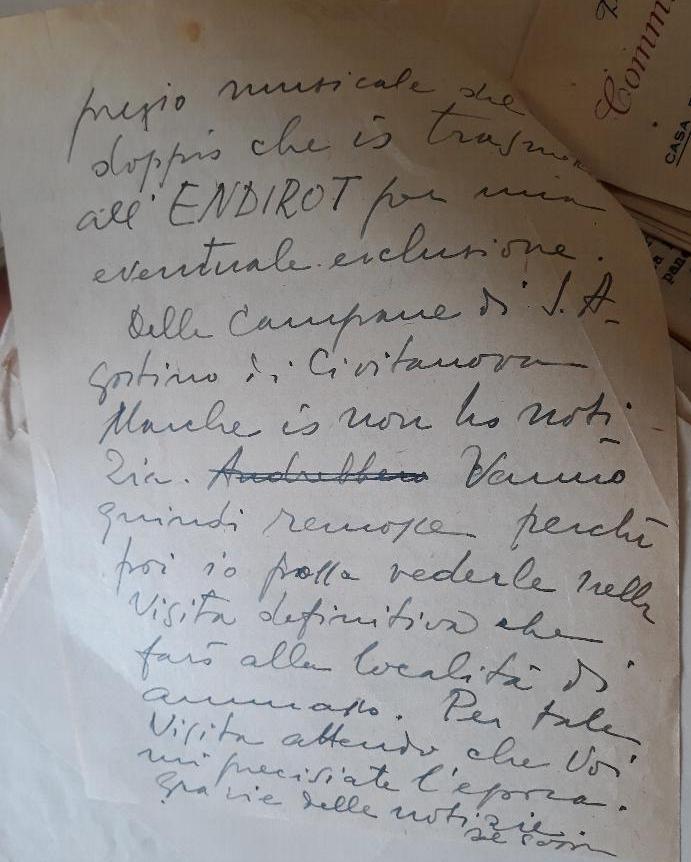 pregio musicale del
doppio che io
all' ENDIROT per una
eventuale esclusione.
Delle Campane di S. A-
gostino di Civitanova
Marche io non ho noti
zia. Andrebbero Vanno
quindi remosse perchè
poi io possa vederle nella
visita definitiva che
farò alla località di
ammasso. Per tale
visita attendo che Voi
mi precisiate l'epoca.
Grazie delle notizie
Comm
CASA
pane